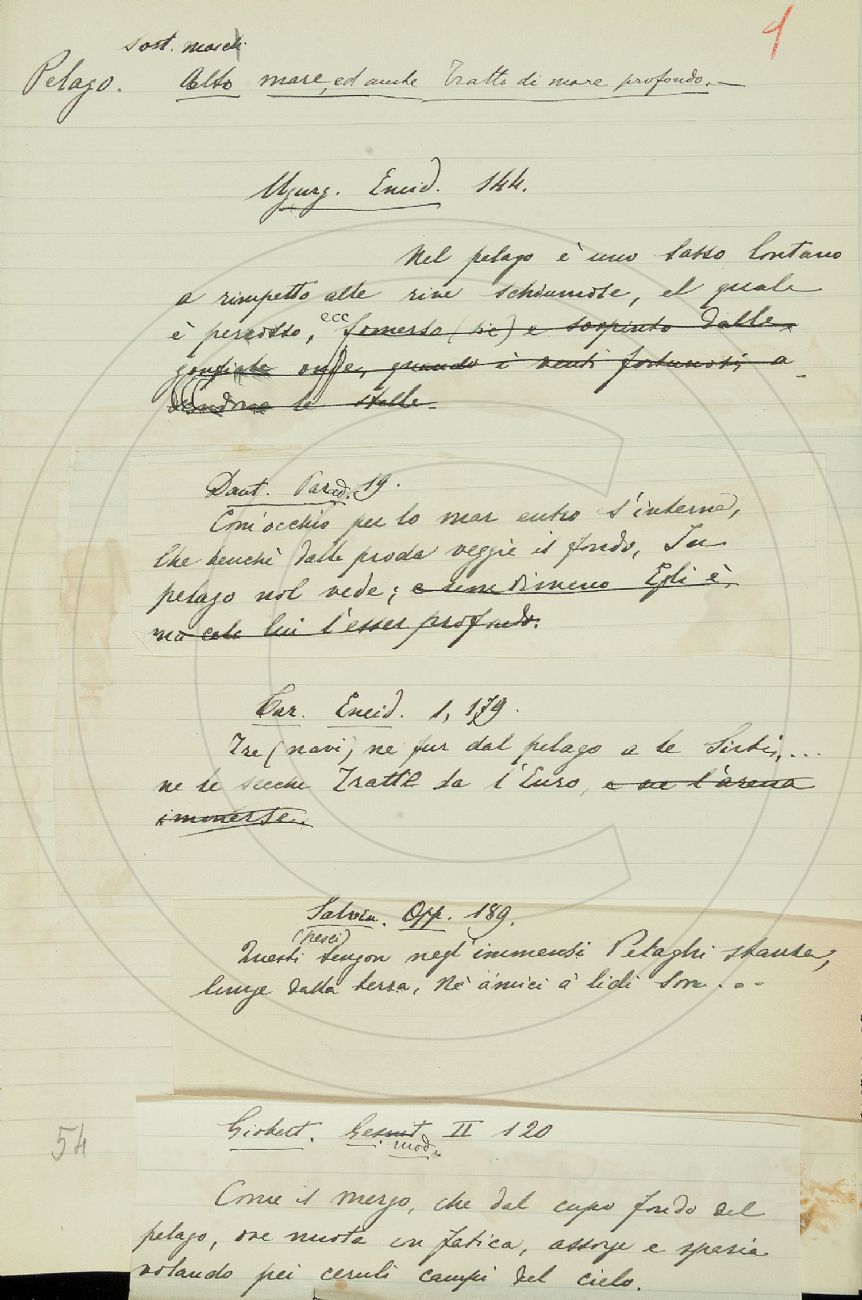 1
sost. masch
Pelago. Alto mare, ed anche Tratto di mare profondo.—
Ugurg. Eneid. 144.
Nel pelago è uno sasso lontano
a rimpetto alle rive schiumose, el quale
è percosso, ecc somerso (sic) e sospinto dalle
gonfiate onde, quando i venti fortunosi, a-
le stelle.
Dant. Parad. 19.
Com'occhio per lo mar entro s'interna,
Che benchè dalla proda veggia il fondo, In
pelago nol vede; e nenodimeno Egli è,
ma cela lui l'esser profondo.
Car. Eneid. 1, 179.
Tre (navi) ne fur dal pelago a le Sirti,...
ne le secche Tratte da l'Euro, e ne l'arena
immerse.
Salvin. Opp. 189.
(pesci)
Questi tengon negl'immensi Pelaghi stanza,
lunge dalla terra, Nè amici a' lidi son...
Giobert. Gesuit II 120
mod.
Come il mergo, che dal cupo fondo del
pelago, ove nuota in fatica, assorge e spazia
volando pei ceruli campi del cielo.
54